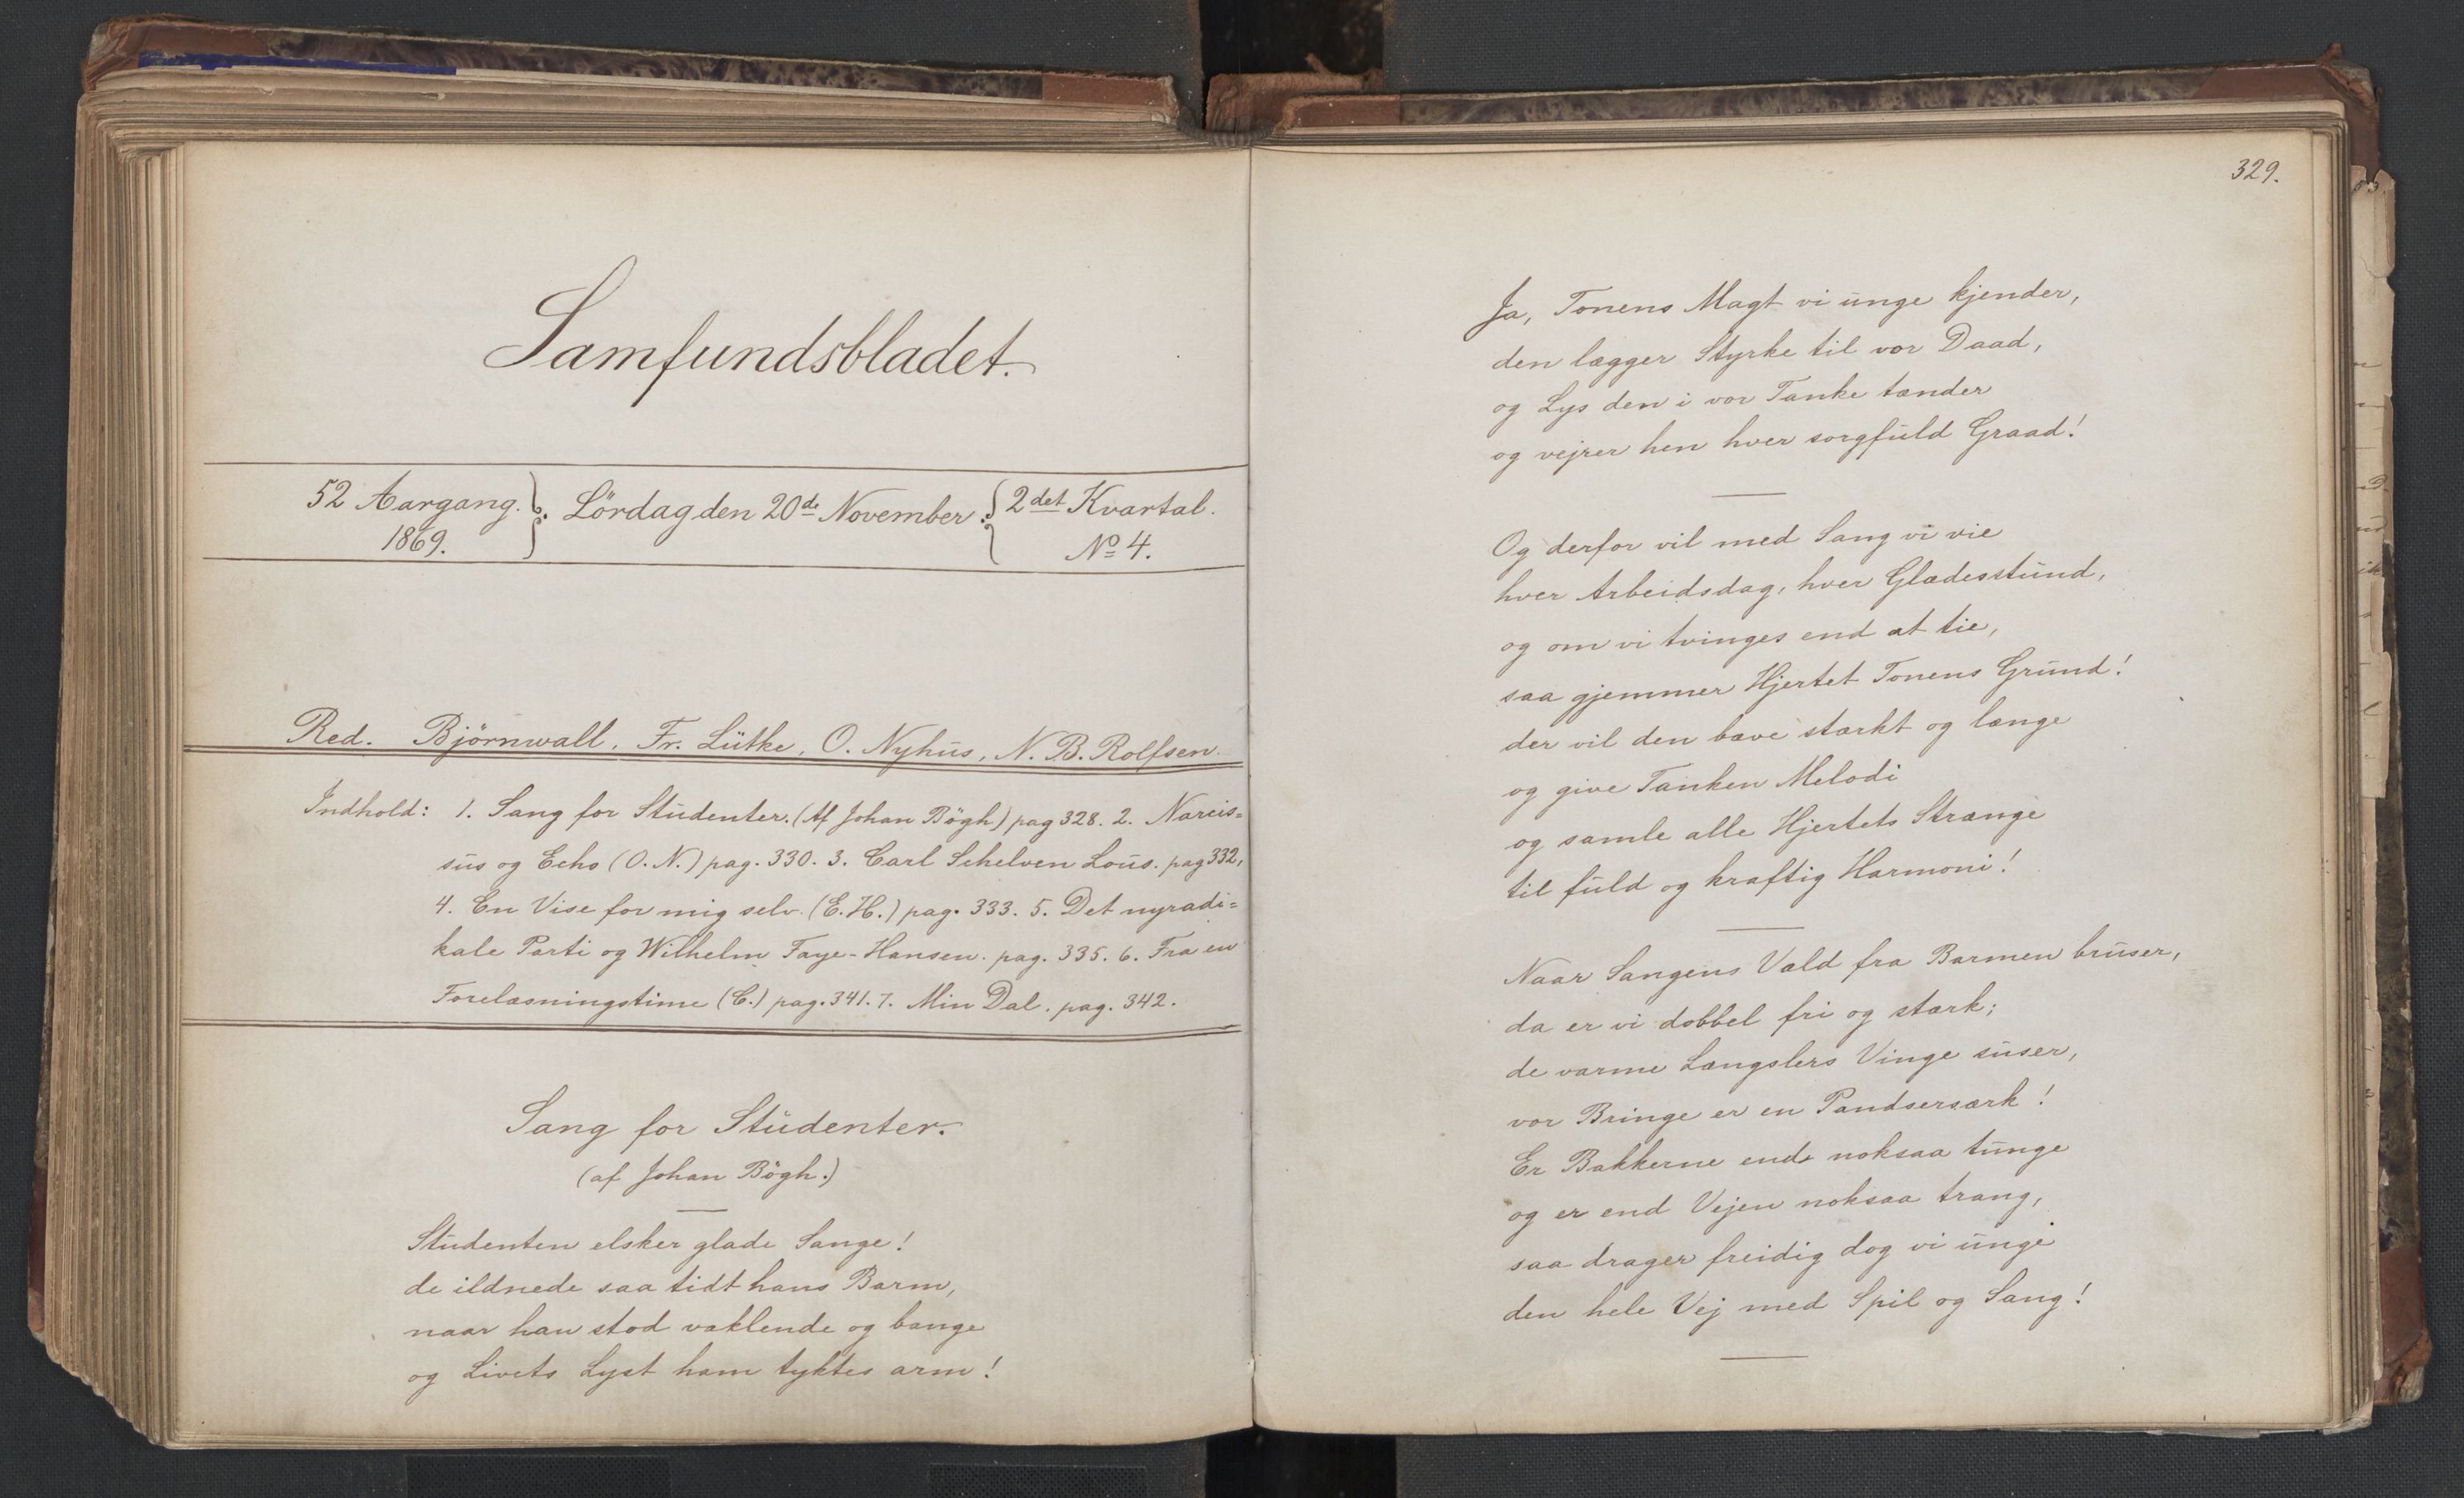 Samfundsbladet.
52 Aargang. 1869. Lördag den 20de November. 2det Kvartal. No 4.
Red. Björnwall, Fr. Lütke, O. Nyhus, N. B. Rolfsen.
Indhold: 1. Sang for Studenter. (Af Johan Bögh) pag 328. 2. Narcis=
sus og Echo (O. N.) pag. 330. 3. Carl Schelven Lous. pag 332,
4. En Vise for mig selv. (E. H.) pag. 333. 5. Det nyradi=
kale Parti og Wilhelm Faye-Hansen. pag. 335. 6. Fra en
Forelæsningstime (C.) pag. 341. 7. Min Dal. pag. 342.
Sang for Studenter.
(af Johan Bögh.)
Studenten elsker glade Sange!
de ildnede saa tidt hans Barm,
naar han stod vaklende og bange
og Livets Lyst ham tyktes arm!
329.
Ja, Tonens Magt vi unge kjender,
den lægger Styrke til vor Daad,
og Lys den i vor Tanke tænder
og vejrer hen hver sorgfuld Graad!
Og derfor vil med Sang vi vie
hver Arbeidsdag, hver Glædesstund,
og om vi tvinges end at tie,
saa gjemmer Hjertet Tonens Grund!
der vil den bæve stærkt og længe
og give Tanken Melodi
og samle alle Hjertets Strænge
til fuld og kraftig Harmoni!
Naar Sangens Væld fra Barmen bruser,
da er vi dobbel fri og stærk;
de varme Længslers Vinge suser,
vor Bringe er en Pandsersærk!
Er Bakkerne end noksaa tunge
og er end Vejen noksaa trang,
saa drager freidig dog vi unge
den hele Vej med Spil og Sang!